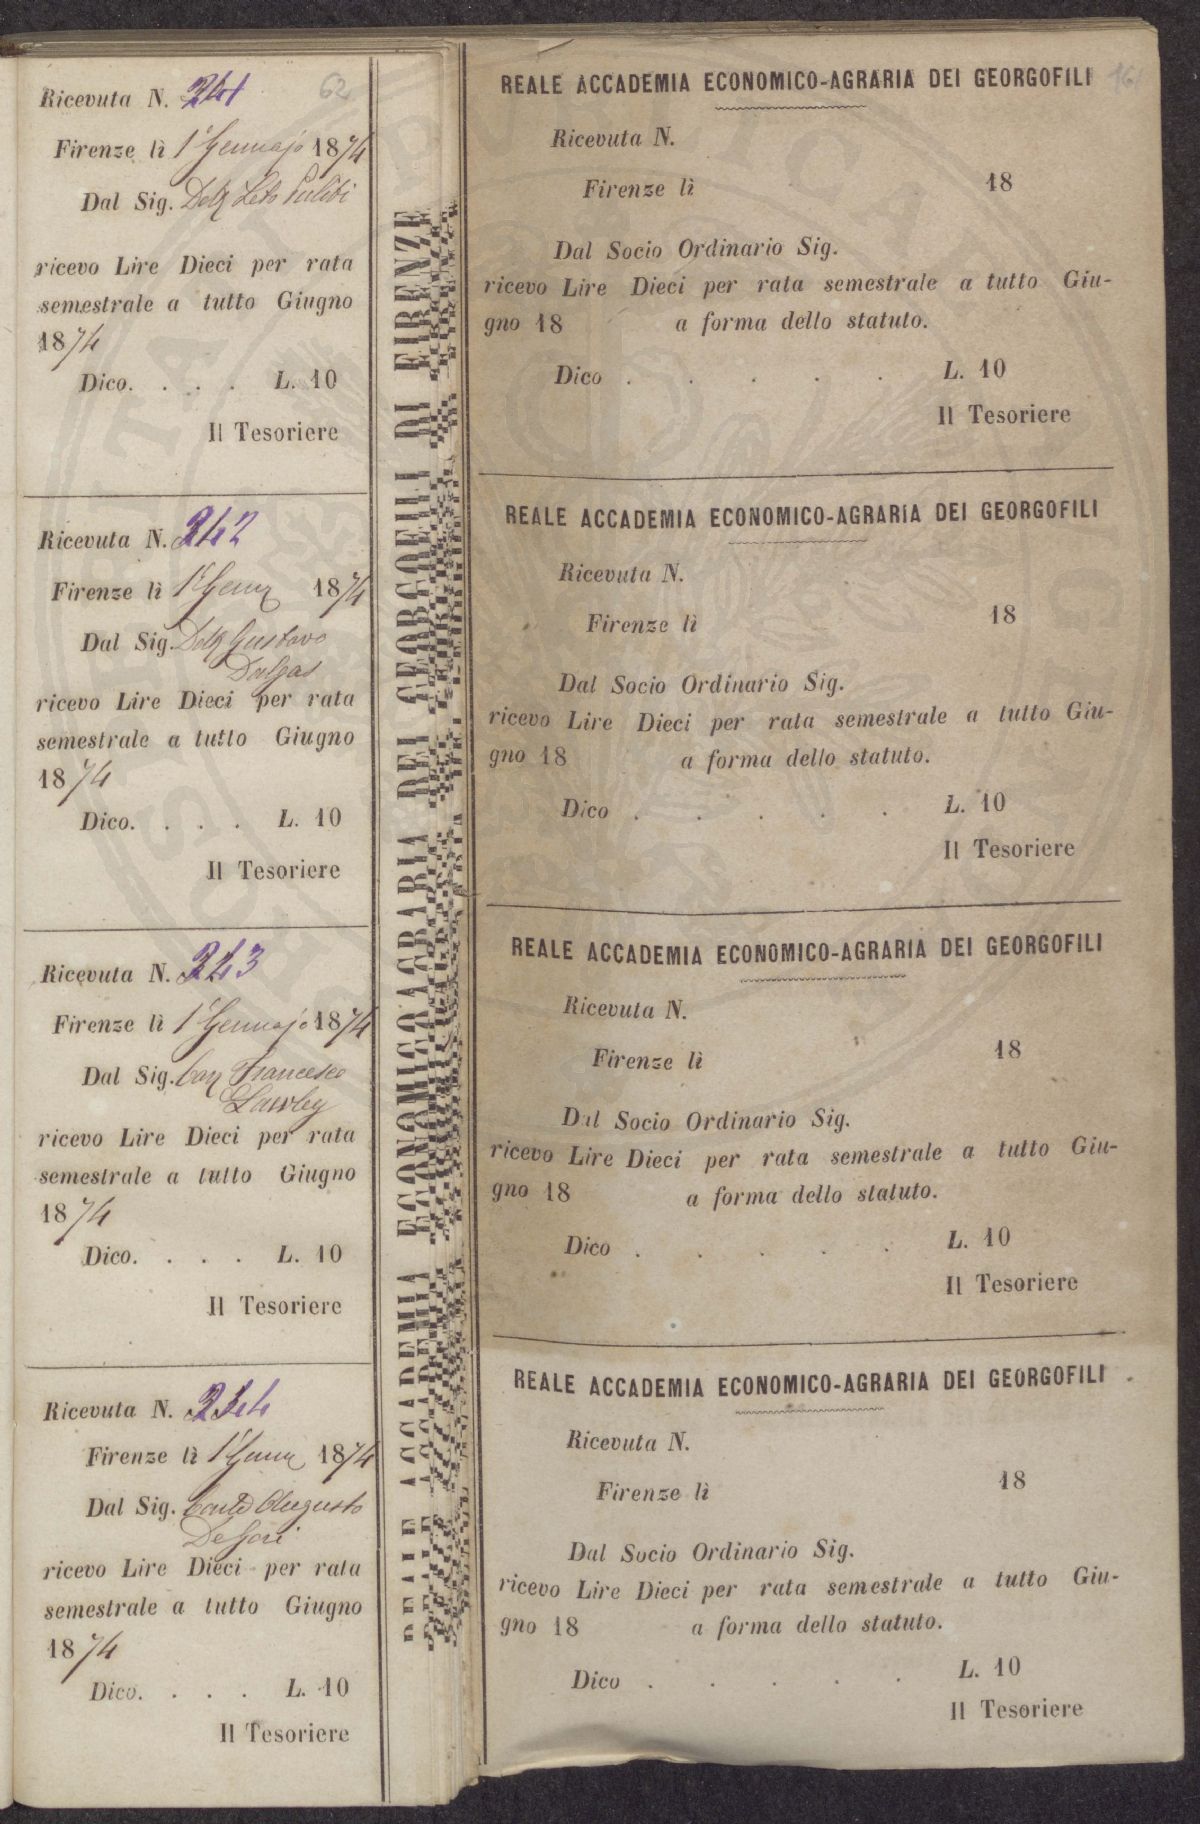 Ricevuta N. 241
62
Firenze lì 1° Gennajo 1874
Dal Sig. Dott Leto Pulíti
ricevo Lire Dieci per rata
semestrale a tutto Giugno
1874
Dico. . . . L. 10
Il Tesoriere
Ricevuta N. 242
Firenze lì 1° Genn 1874
Dal Sig. Dott Gustavo
Dalgas
ricevo Lire Dieci per rata
semestrale a tutto Giugno
1874
Dico. . . . L. 10
Il Tesoriere
Ricevuta N. 243
Firenze lì 1° Gennajo 1874
Dal Sig. Cav Francesco
Lawley
ricevo Lire Dieci per rata
semestrale a tutto Giugno
1874
Dico. . . . L. 10
Il Tesoriere
Ricevuta N. 244
Firenze lì 1° Genn 1874
Dal Sig. Conte Augusto
De Gori
ricevo Lire Dieci per rata
semestrale a tutto Giugno
1874
Dico. . . . L. 10
Il Tesoriere
REALE ACCADEMIA ECONOMICO AGRARIA DEI GEORGOFILI DI FIRENZE
REALE ACCADEMIA ECONOMICO-AGRARIA DEI GEORGOFILI
Ricevuta N.
Firenze lì 18
Dal Socio Ordinario Sig.
ricevo Lire Dieci per rata semestrale a tutto Giu-
gno 18 a forma dello statuto.
Dico . . . . . L. 10
Il Tesoriere
REALE ACCADEMIA ECONOMICO-AGRARIA DEI GEORGOFILI
Ricevuta N.
Firenze lì 18
Dal Socio Ordinario Sig.
ricevo Lire Dieci per rata semestrale a tutto Giu-
gno 18 a forma dello statuto.
Dico . . . . . L. 10
Il Tesoriere
REALE ACCADEMIA ECONOMICO-AGRARIA DEI GEORGOFILI
Ricevuta N.
Firenze lì 18
Dal Socio Ordinario Sig.
ricevo Lire Dieci per rata semestrale a tutto Giu-
gno 18 a forma dello statuto.
Dico . . . . . L. 10
Il Tesoriere
REALE ACCADEMIA ECONOMICO-AGRARIA DEI GEORGOFILI
Ricevuta N.
Firenze lì 18
Dal Socio Ordinario Sig.
ricevo Lire Dieci per rata semestrale a tutto Giu-
gno 18 a forma dello statuto.
Dico . . . . . L. 10
Il Tesoriere